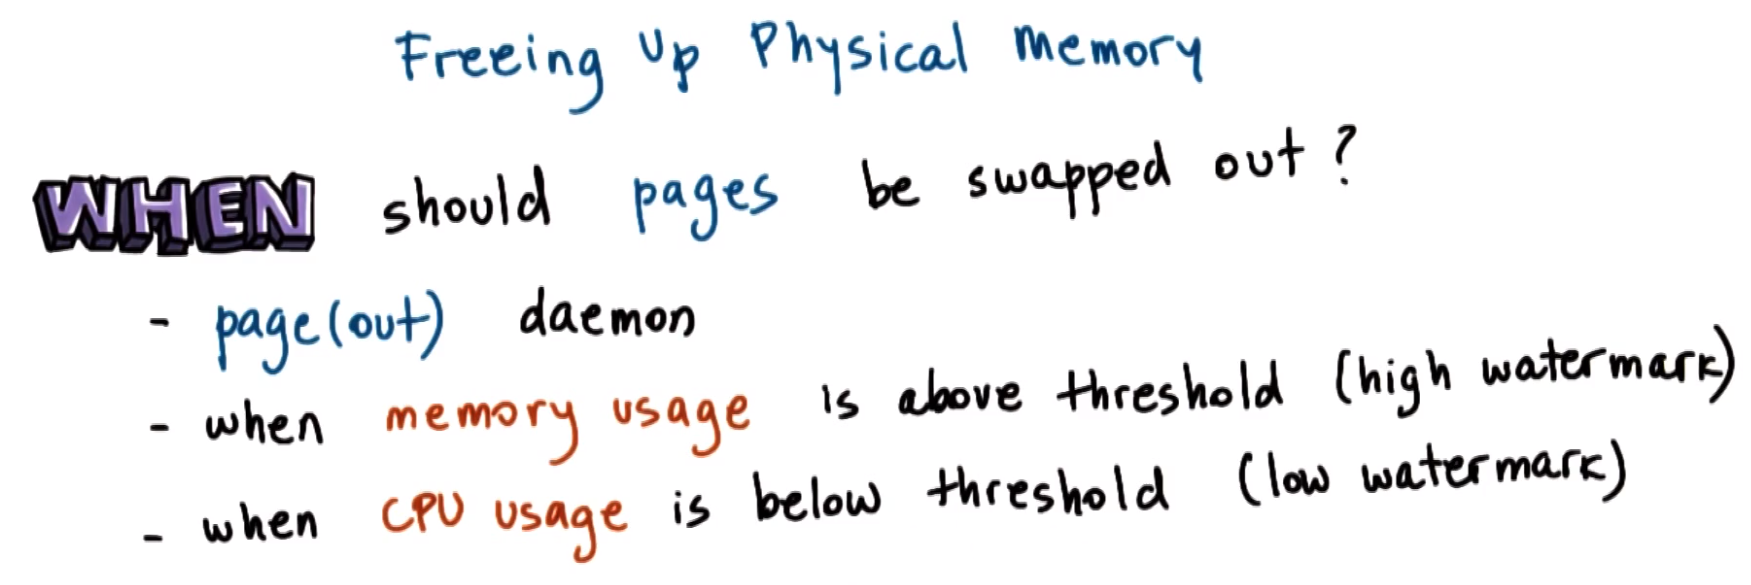 Freeing Up Physical Memory
WHEN should pages be swapped out?
- page(out) daemon
- when memory usage is above threshold (high watermark)
- when CPU usage is below threshold (low watermark)